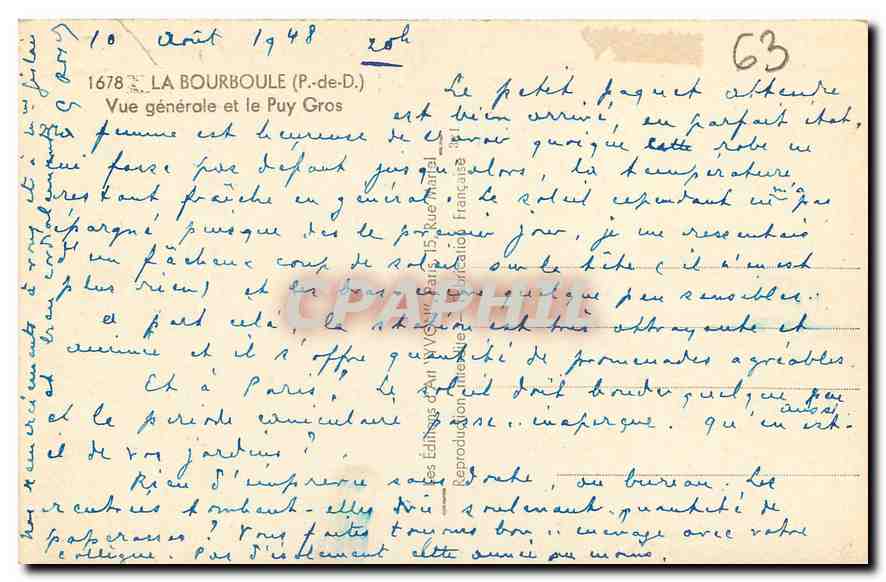 10 Août 1948 20h
63
1678 LA BOURBOULE (P.-de-D.)
Vue générale et le Puy Gros
Le petit paquet attendu
est bien arrivé, en parfait état.
La femme est heureuse de savoir quoique cette robe ne
lui fasse pas défaut jusqu'alors, la température
restant fraîche en général. Le soleil cependant ne m'a pas
épargné puisque dès le premier jour, je me ressentais
d'un fâcheux coup de soleil sur la tête (il n'en est
plus rien) et les bras quelque peu sensibles.
A part cela la station est très attrayante et
et il s'offre quantité de promenades agréables.
Et à Paris? Le soleil doit bouder quelque peu
et la période caniculaire passe inaperçue. Qu'en est-
il de vos jardins? aussi
Rien d'imprévu sans doute, au bureau. Les
rentrées tombent-elles soulevant quantité de
paperasses? Vous faites toujours bon ménage avec votre
collègue. Pas d'isolement cette année au moins.
Nos remerciements à vous et à
et bien cordialement
Les Éditions d'Art "YVON" Paris, 15, Rue Martel
Reproduction Interdite Fabrication Française
CPAPHIL